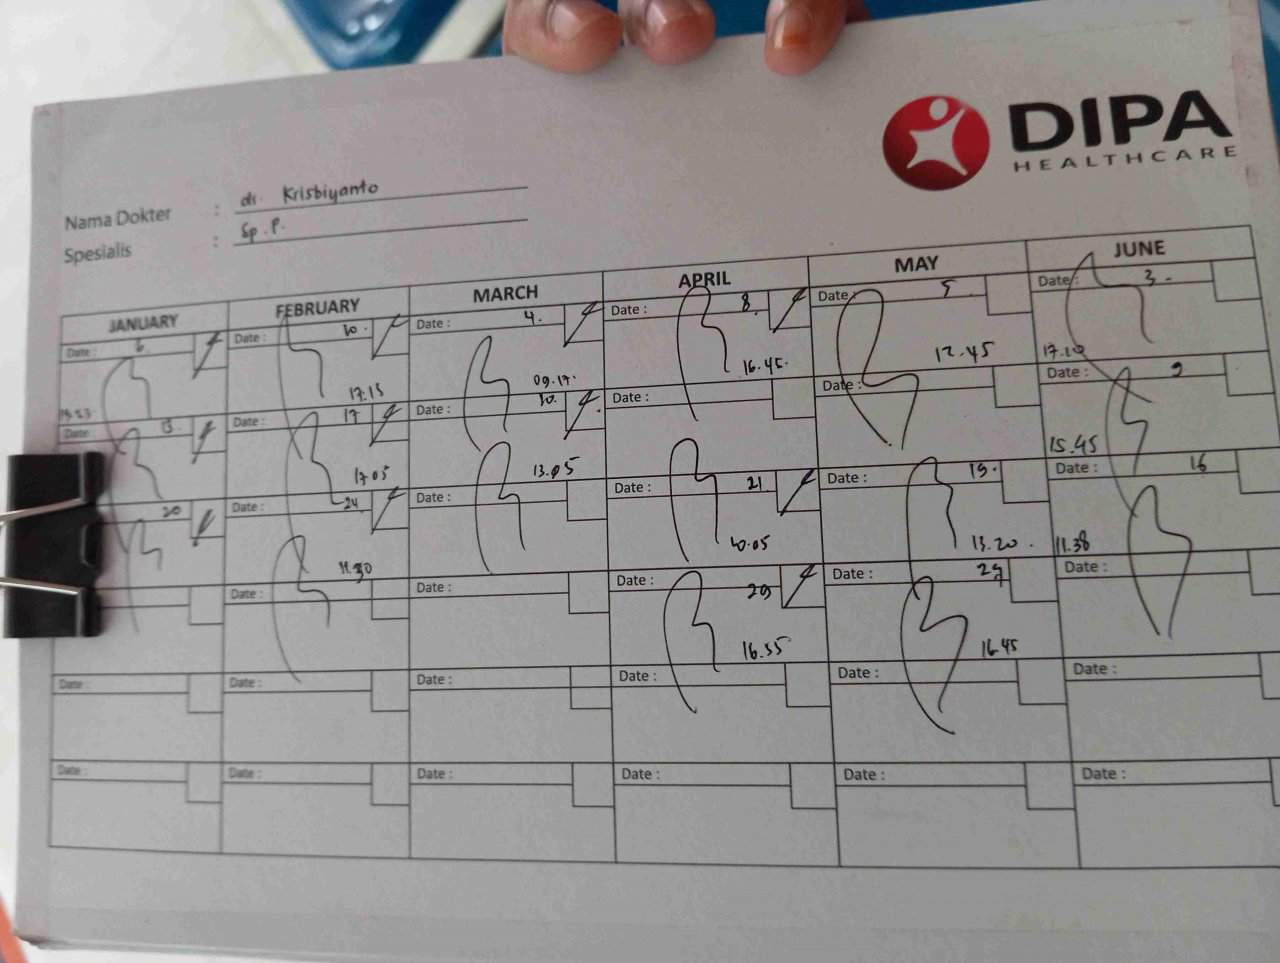 DIPA
HEALTHCARE
Nama Dokter : dr. Krisbiyanto
Spesialis : Sp.P.
JANUARY FEBRUARY MARCH APRIL MAY JUNE
Date : 6. Date : 10. Date : 4. Date : 8. Date : 5. Date : 3.
17.15 09.17. 16.45. 12.45 17.20
Date : 13. Date : 17 Date : 10. Date : Date : Date : 9
17.05 13.05 15.45
20 Date : 24 Date : Date : 21 Date : 19. Date : 16
11.30 10.05 13.20. 11.38
Date : Date : Date : 29 Date : 27 Date :
16.55 16.45
Date : Date : Date : Date : Date : Date :
Date : Date : Date : Date : Date : Date :